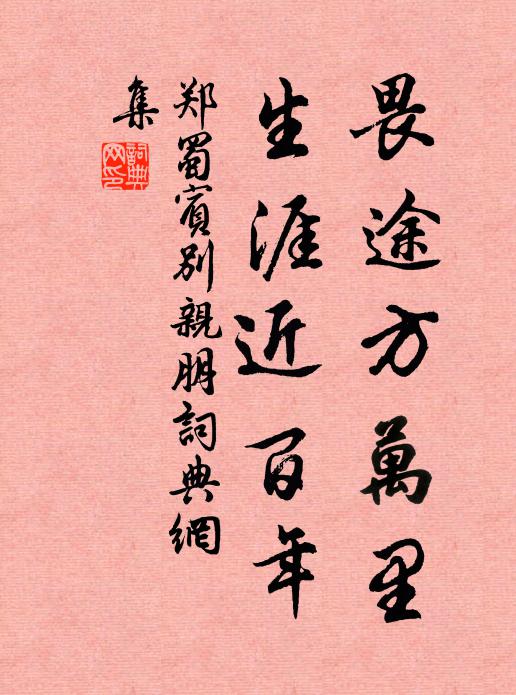 畏途方萬里
生涯近百年
郑蜀賓别親朋詞典網
集
詞典
网印